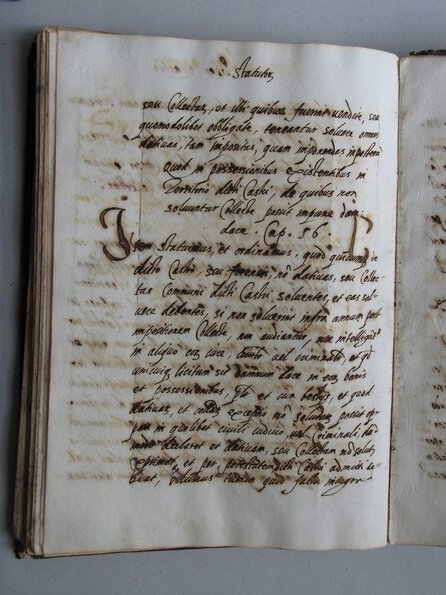 Statutor.
seu Collectar, et illi quibus fuerint vendite, seu
quomodolibet obbligate, teneantur solvere omnes
dativas, tam impositas, quam imponendas in posterum
Quod in possessionibus existentibus in
Territorio dicti Castri, de quibus non
solvuntur Collecte possit impune dam:
dare. Cap. 56.
Item statuimus, et ordinamus, quod quicumq de
dicto Castro, seu forensis, nõ dativas, seu Collec
tas Communi dicti Castri solventes, et eas sol
vere debentes, si non solverint infra annum post
impositionem Collecte, non audiantur, nec intelligant
in aliquo eor iure, civili vel criminali, et qd
unicuiq licitum sit damnum dare in eor bonis
et possessionibus, et cum bestijs, et quod
dativar, et collectar exceptio nõ solutar possit op
poni in quolibet civili iudicio vel Criminali,
declaret et dativam, seu Collectam nõ solut
et per potestatem dicti Castri admitti de
beat, volumus